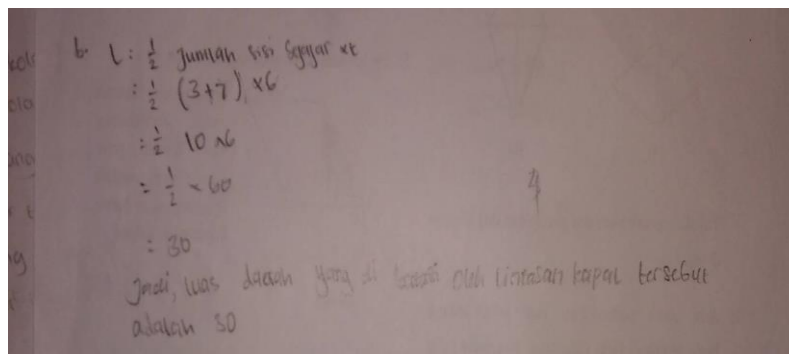 b. L : 1/2 Jumlah sisi sejajar xt
: 1/2 (3+7) x6
: 1/2 10 x6
= 1/2 x 60
: 30
Jadi, luas daerah yang di batasi oleh lintasan kapal tersebut
adalah 30
4